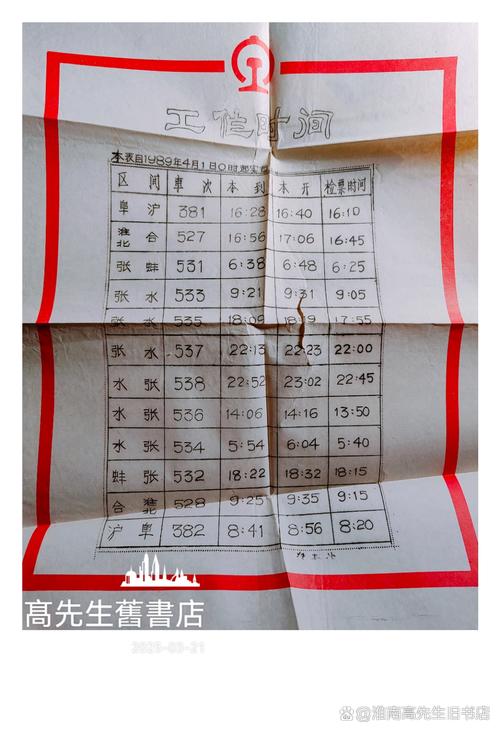 工作时间
本表自1989年4月1日0时起实
区 间 车 次 本 到 本 开 检票时间
阜 沪 381 16:28 16:40 16:10
淮北 合 527 16:56 17:06 16:45
张 蚌 531 6:38 6:48 6:25
张 水 533 9:21 9:31 9:05
张 水 535 18:09 18:19 17:55
张 水 537 22:13 22:23 22:00
水 张 538 22:52 23:02 22:45
水 张 536 14:06 14:16 13:50
水 张 534 5:54 6:04 5:40
蚌 张 532 18:22 18:32 18:15
合 淮北 528 9:25 9:35 9:15
沪 阜 382 8:41 8:56 8:20
高先生舊書店
2025-03-21
@淮南高先生旧书店